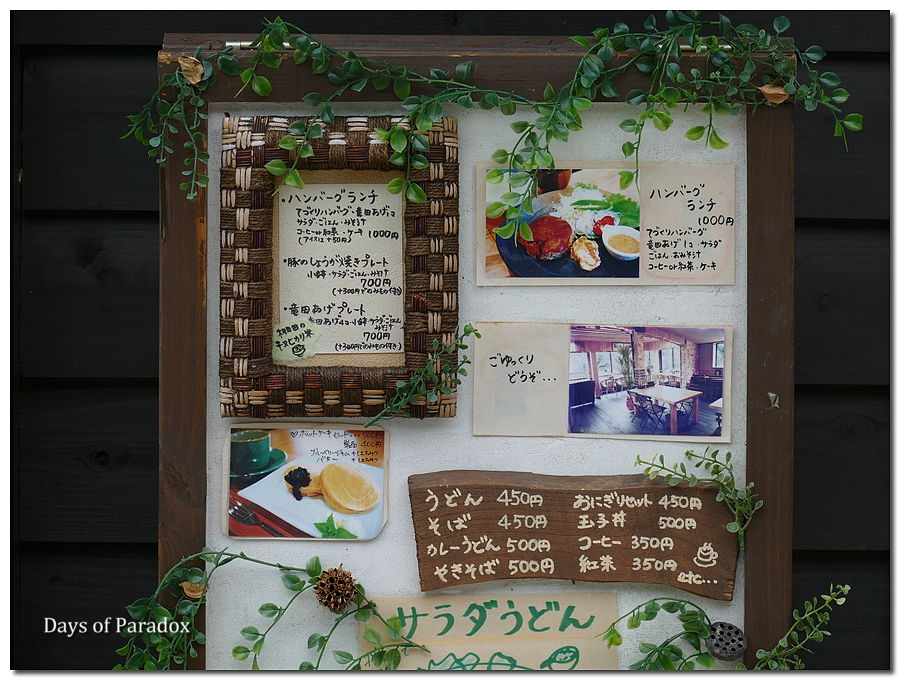 ・ハンバーグランチ
てづくりハンバーグ・竜田あげ1コ
サラダ・ごはん・みそ汁
コーヒーor紅茶・ケーキ 1000円
(アイスは+50円)
・豚のしょうが焼きプレート
小鉢・サラダ・ごはん・みそ汁
700円
(+300円でのみもの付き)
・竜田あげプレート
竜田あげ4コ・小鉢・サラダ・ごはん
みそ汁
700円
(+300円でのみもの付き)
ハンバーグ
ランチ
1000円
てづくりハンバーグ
竜田あげ1コ・サラダ
ごはん・おみそ汁
コーヒーor紅茶・ケーキ
ごゆっくり
どうぞ...
ホットケーキセット... 700円
単品 400円
うどん 450円
そば 450円
カレーうどん 500円
やきそば 500円
おにぎりセット 450円
玉子丼 500円
コーヒー 350円
紅茶 350円
etc...
サラダうどん
Days of Paradox